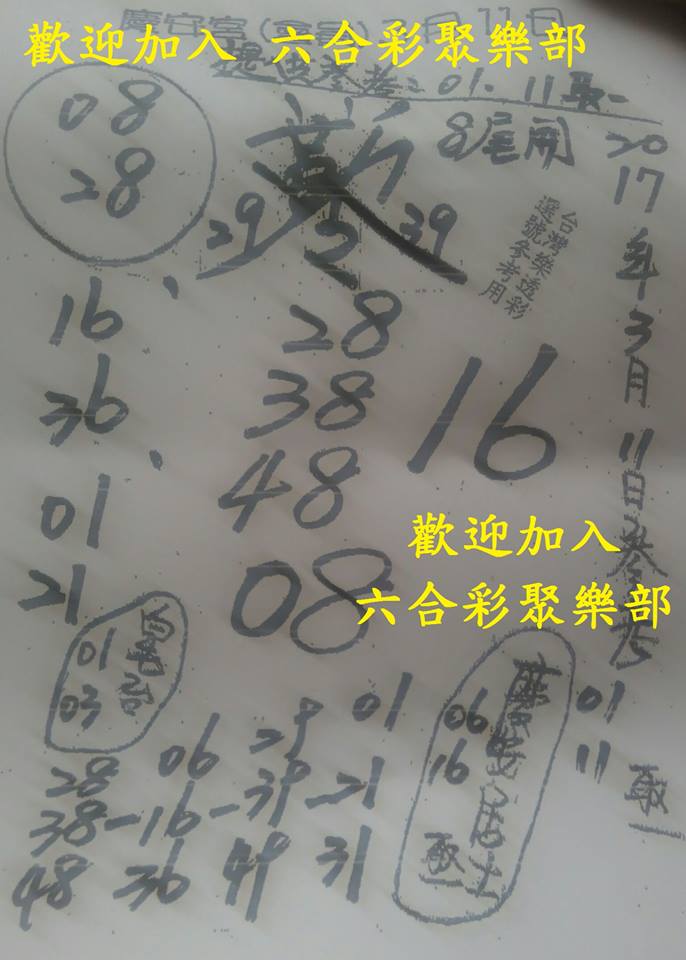 慶安宮
月11日
歡迎加入 六合彩聚樂部
提供參考:01.11取一
08
28
8尾開
29
39
台灣樂透彩
選號參考用
2017年3月11日參考
01
11
取一
16、
36
01、
21
28
38
48
08
16
歡迎加入
六合彩聚樂部
01
03
06
16
取一
28 06 29 01
38-16-39-21
48 36 49 31